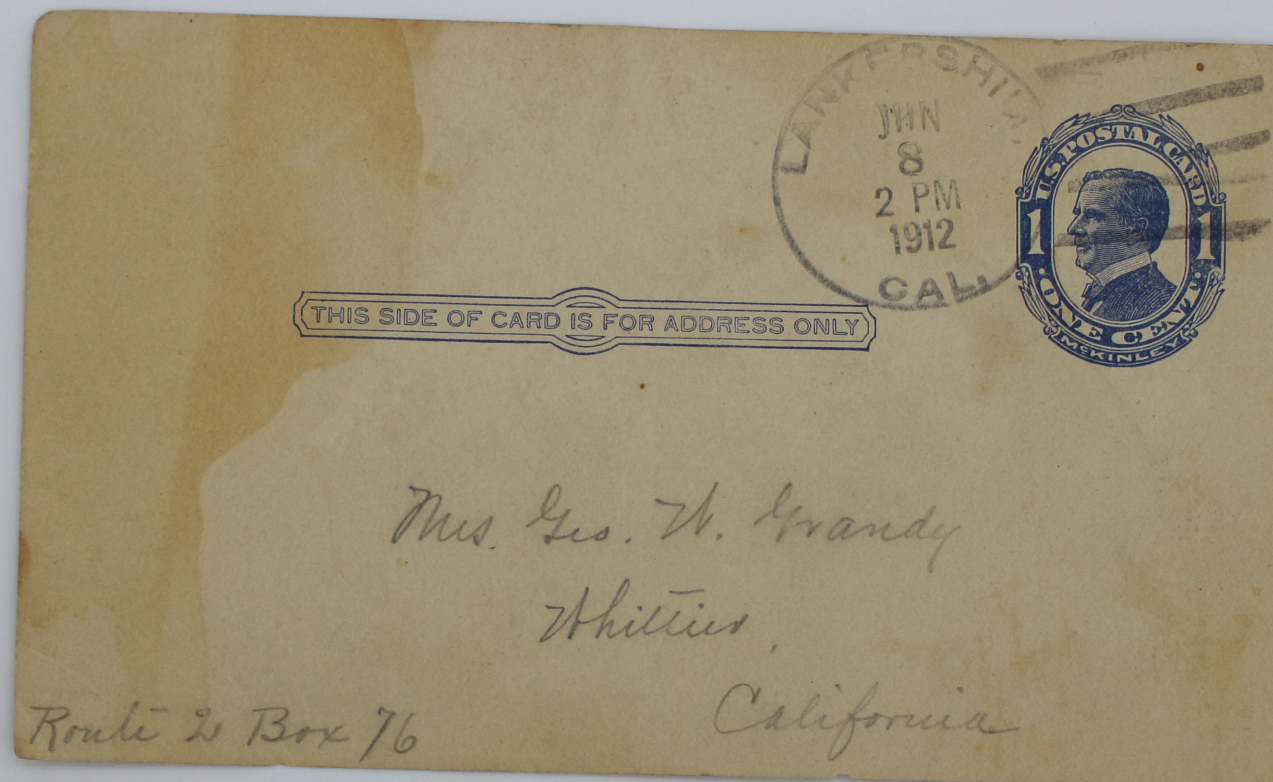 LANKERSHIM,
JUN
8
2 PM
1912
CAL.
U.S. POSTAL CARD
1 1
ONE CENT
McKINLEY
THIS SIDE OF CARD IS FOR ADDRESS ONLY
Mrs. Geo. W. Grandy
Whittier,
California
Route 2 Box 76